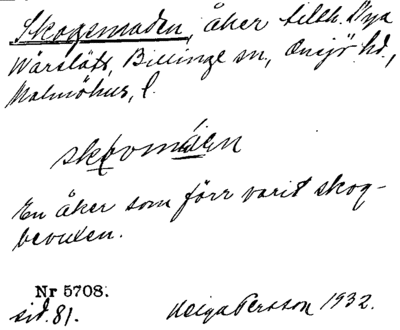 Skogsmaden, åker tillh. Nya
Wärsläts, Billinge sn, Onsjö hd,
Malmöhus, l.
skovmáen
En åker som förr varit skog-
bevuxen.
Nr 5708.
sid. 81. Helga Persson 1932.